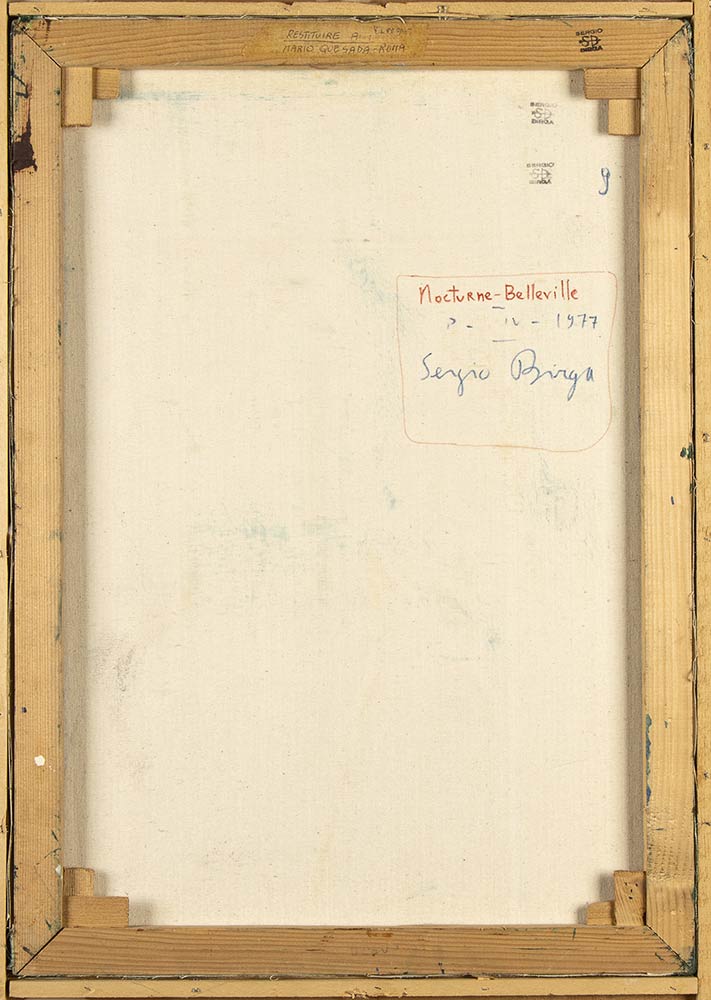 RESTITUIRE A
MARIO QUESADA-ROMA
SERGIO
SD
BIRGA
SERGIO
SD
BIRGA
SERGIO
SD
BIRGA
9
Nocturne-Belleville
IV - 1977
Sergio Birga